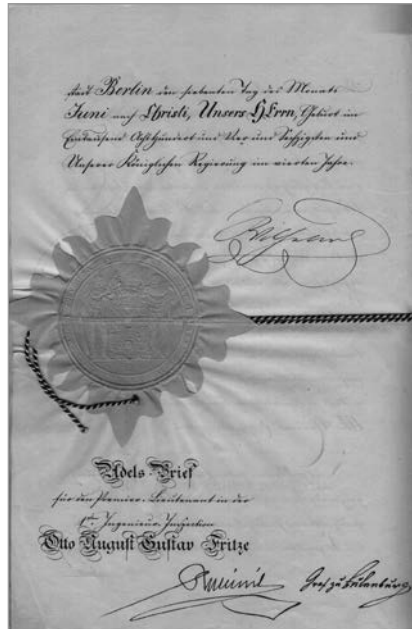 Berlin den siebenten Tag des Monats
Juni nach Christi, Unsers HErrn, Geburt im
Eintausend Achthundert und Vier und Sechzigsten und
Unserer Königlichen Regierung im vierten Jahre.
Wilhelm
Adels-Brief
für den Premier-Lieutenant in der
1ten Ingenieur-Inspection
Otto August Gustav Fritze
Graf zu Eulenburg